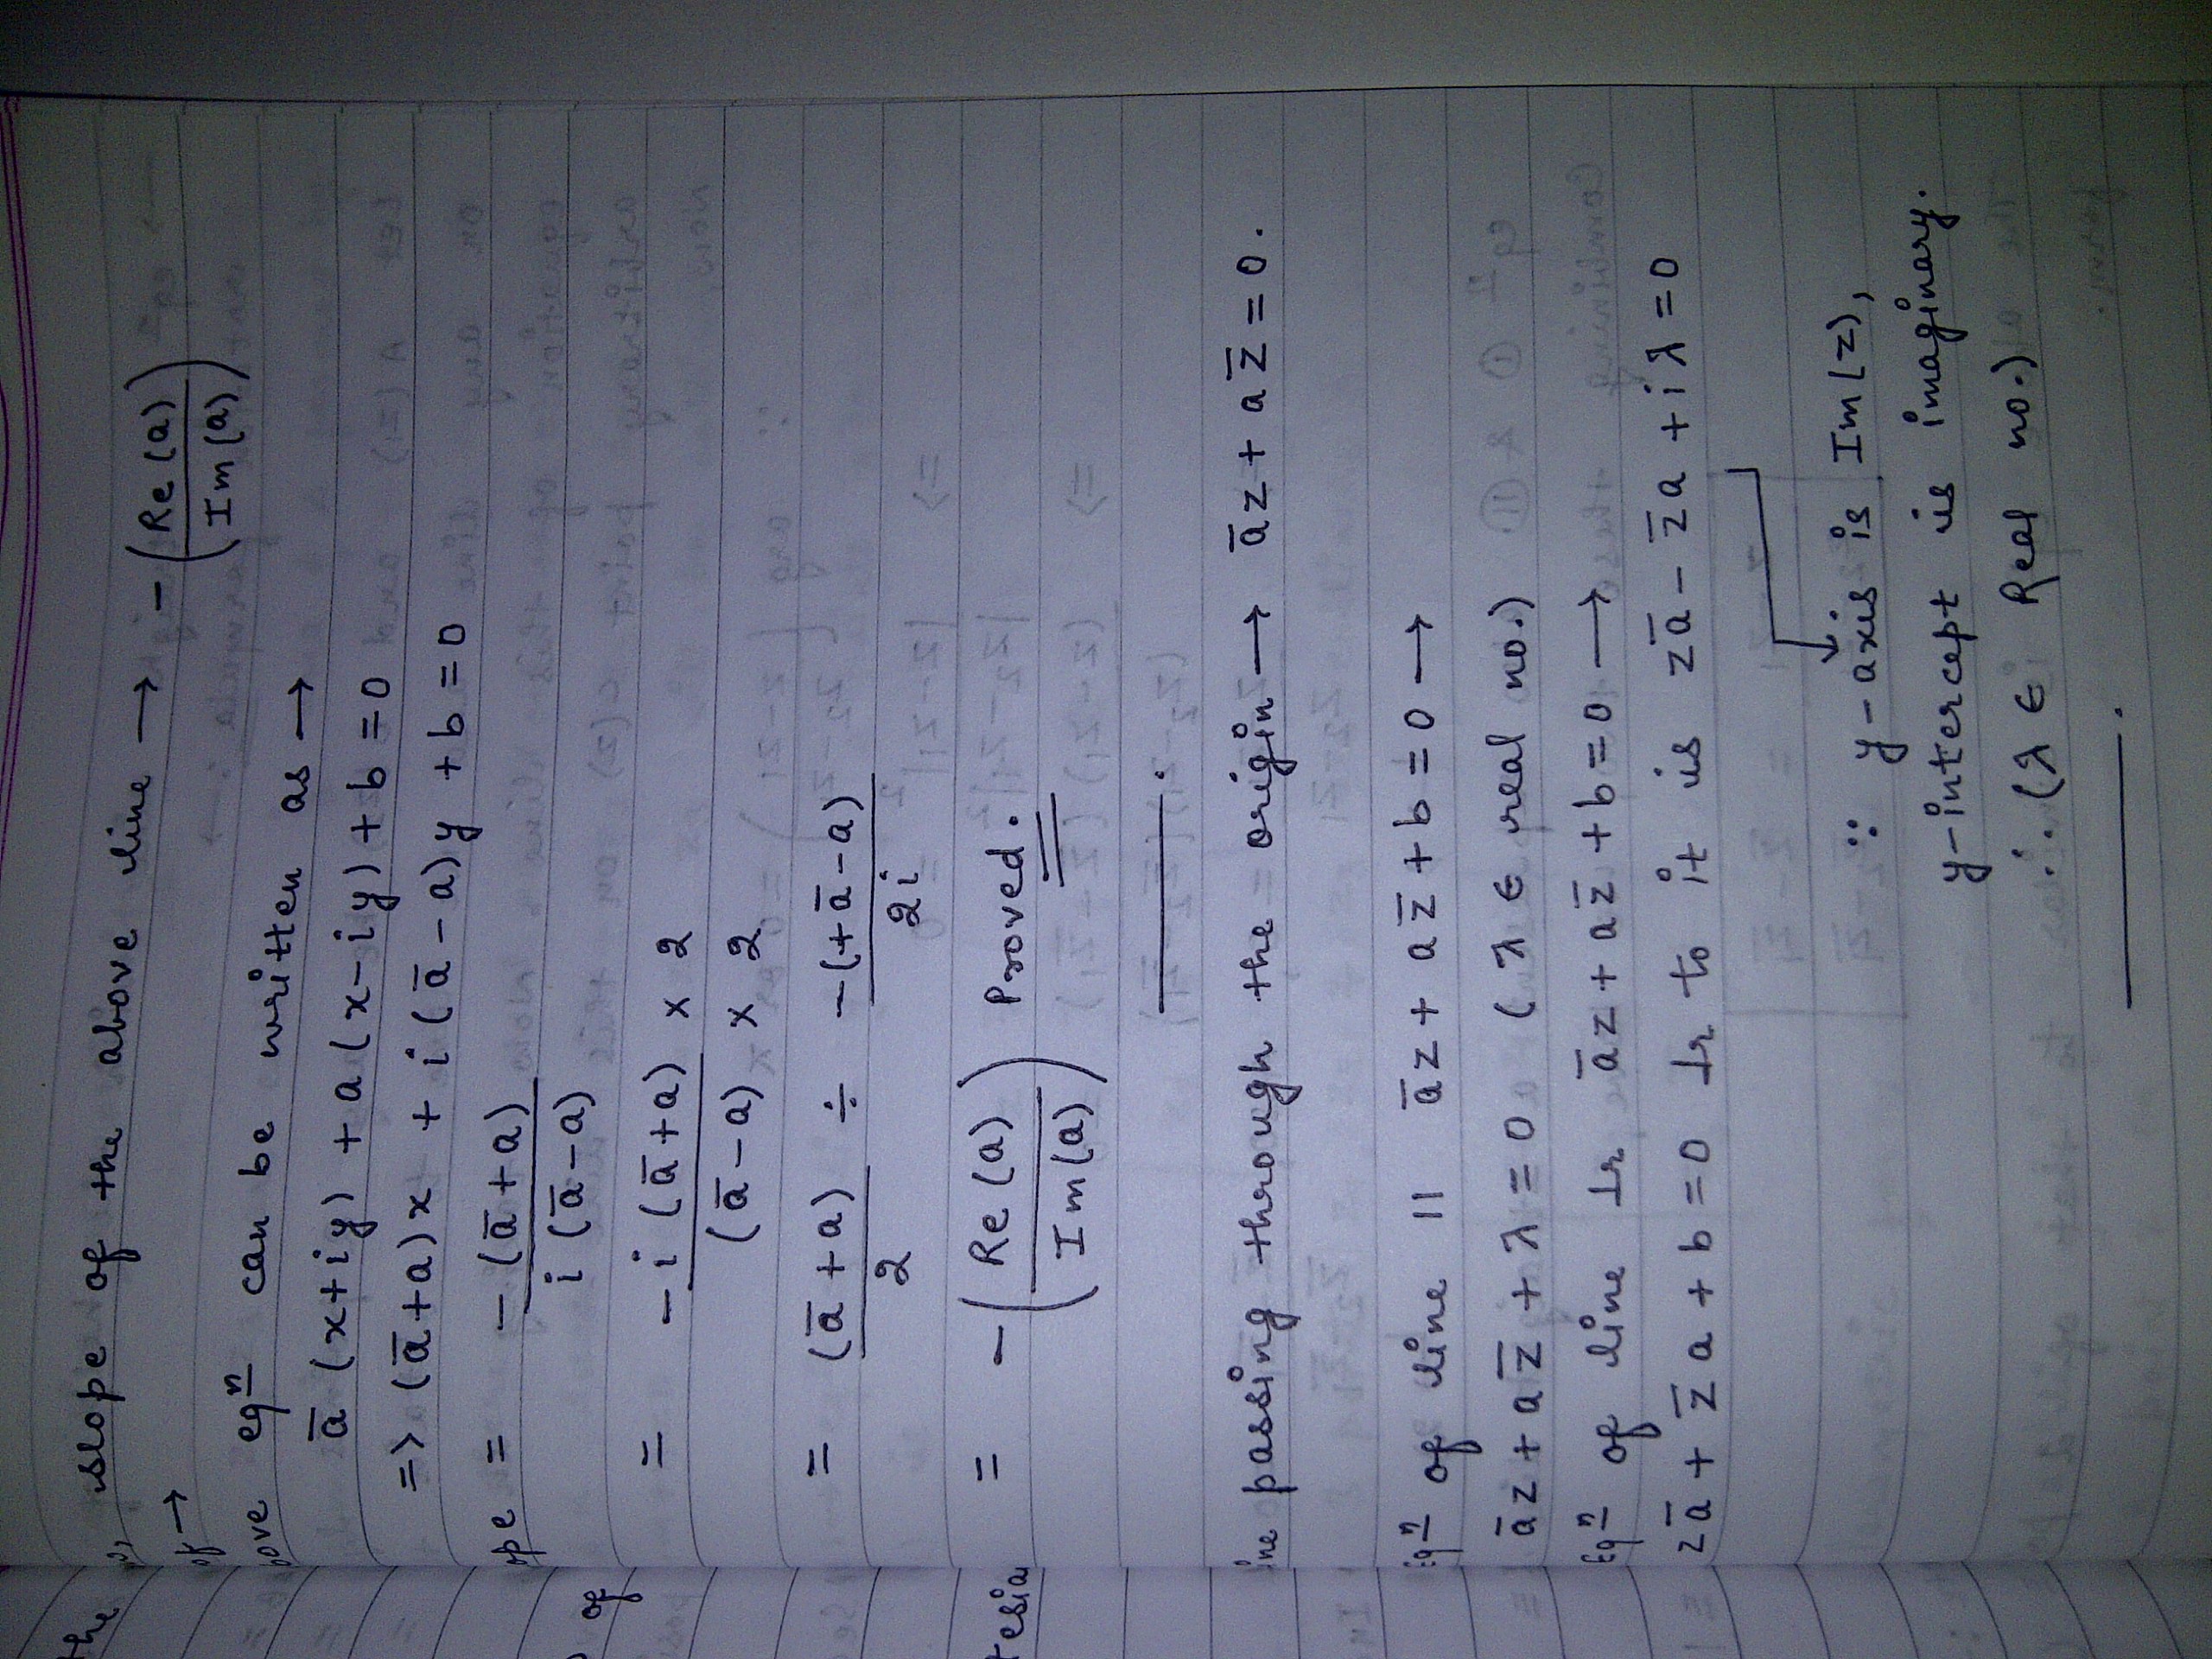 slope of the above line → -(Re(a)/Im(a))
of →
ove eqn can be written as →
ā (x+iy) + a(x-iy) + b = 0
=> (ā+a)x + i(ā-a)y + b = 0
ope = -(ā+a) / i(ā-a)
= -i(ā+a) × 2 / (ā-a) × 2
= (ā+a)/2 ÷ -(+ā-a)/2i
= -(Re(a)/Im(a)) Proved.
ine passing through the origin → āz + az̄ = 0.
Eqn of line || āz + az̄ + b = 0 →
āz + az̄ + λ = 0 (λ ∈ real no.)
Eqn of line ⊥r āz + az̄ + b = 0 →
zā + z̄a + b = 0 ⊥r to it is zā - z̄a + iλ = 0
∵ y-axis is Im(z),
y-intercept is imaginary.
∴ (λ ∈ Real no.)
the
of
tesia